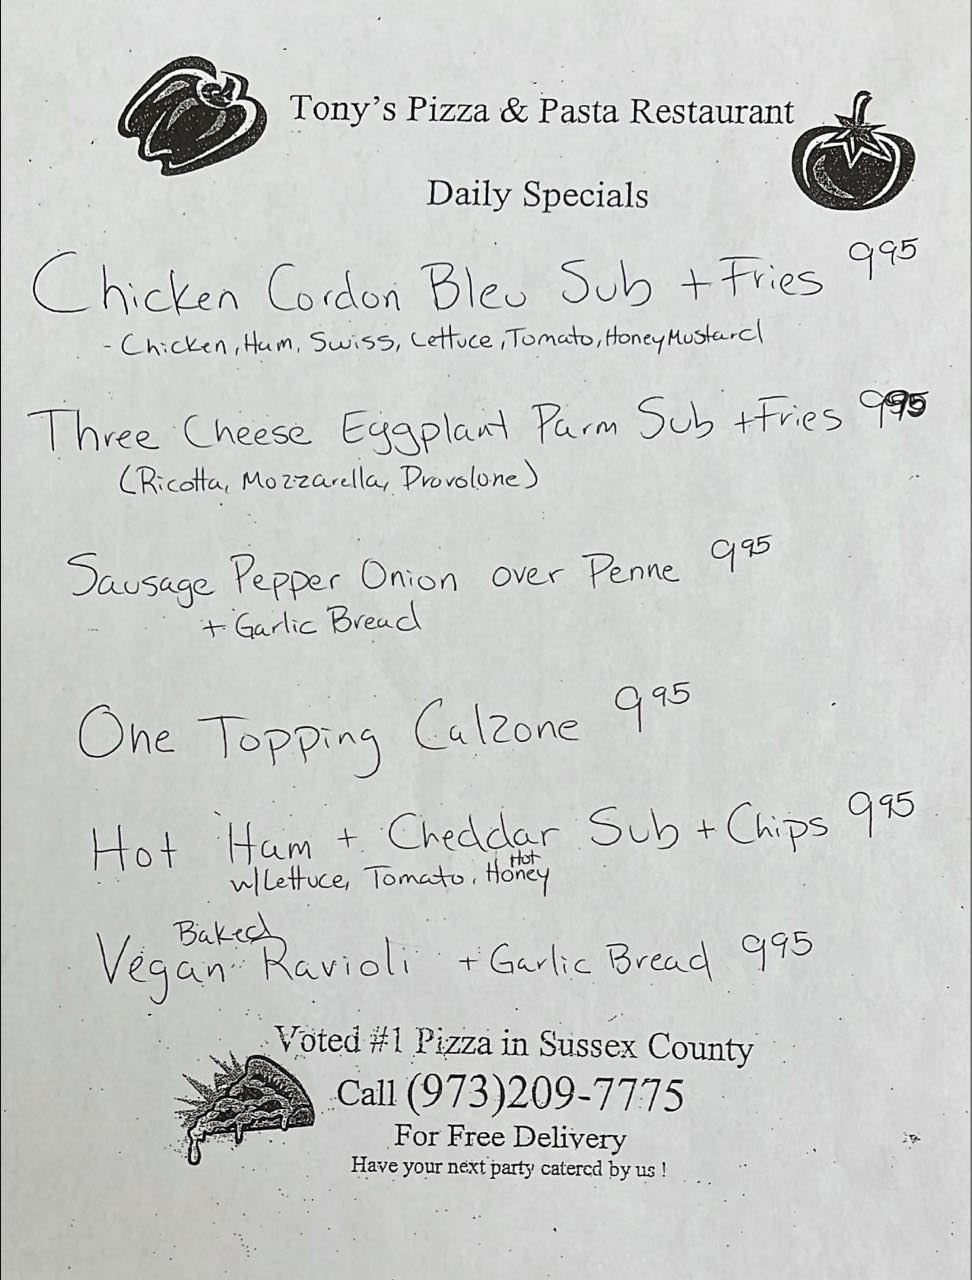 Tony's Pizza & Pasta Restaurant
Daily Specials
Chicken Cordon Bleu Sub + Fries 9 95
- Chicken, Ham, Swiss, Lettuce, Tomato, Honey Mustard
Three Cheese Eggplant Parm Sub + Fries 9 95
(Ricotta, Mozzarella, Provolone)
Sausage Pepper Onion over Penne 9 95
+ Garlic Bread
One Topping Calzone 9 95
Hot Ham + Cheddar Sub + Chips 9 95
w/ Lettuce, Tomato, Hot Honey
Vegan Baked Ravioli + Garlic Bread 9 95
Voted #1 Pizza in Sussex County
Call (973)209-7775
For Free Delivery
Have your next party catered by us !